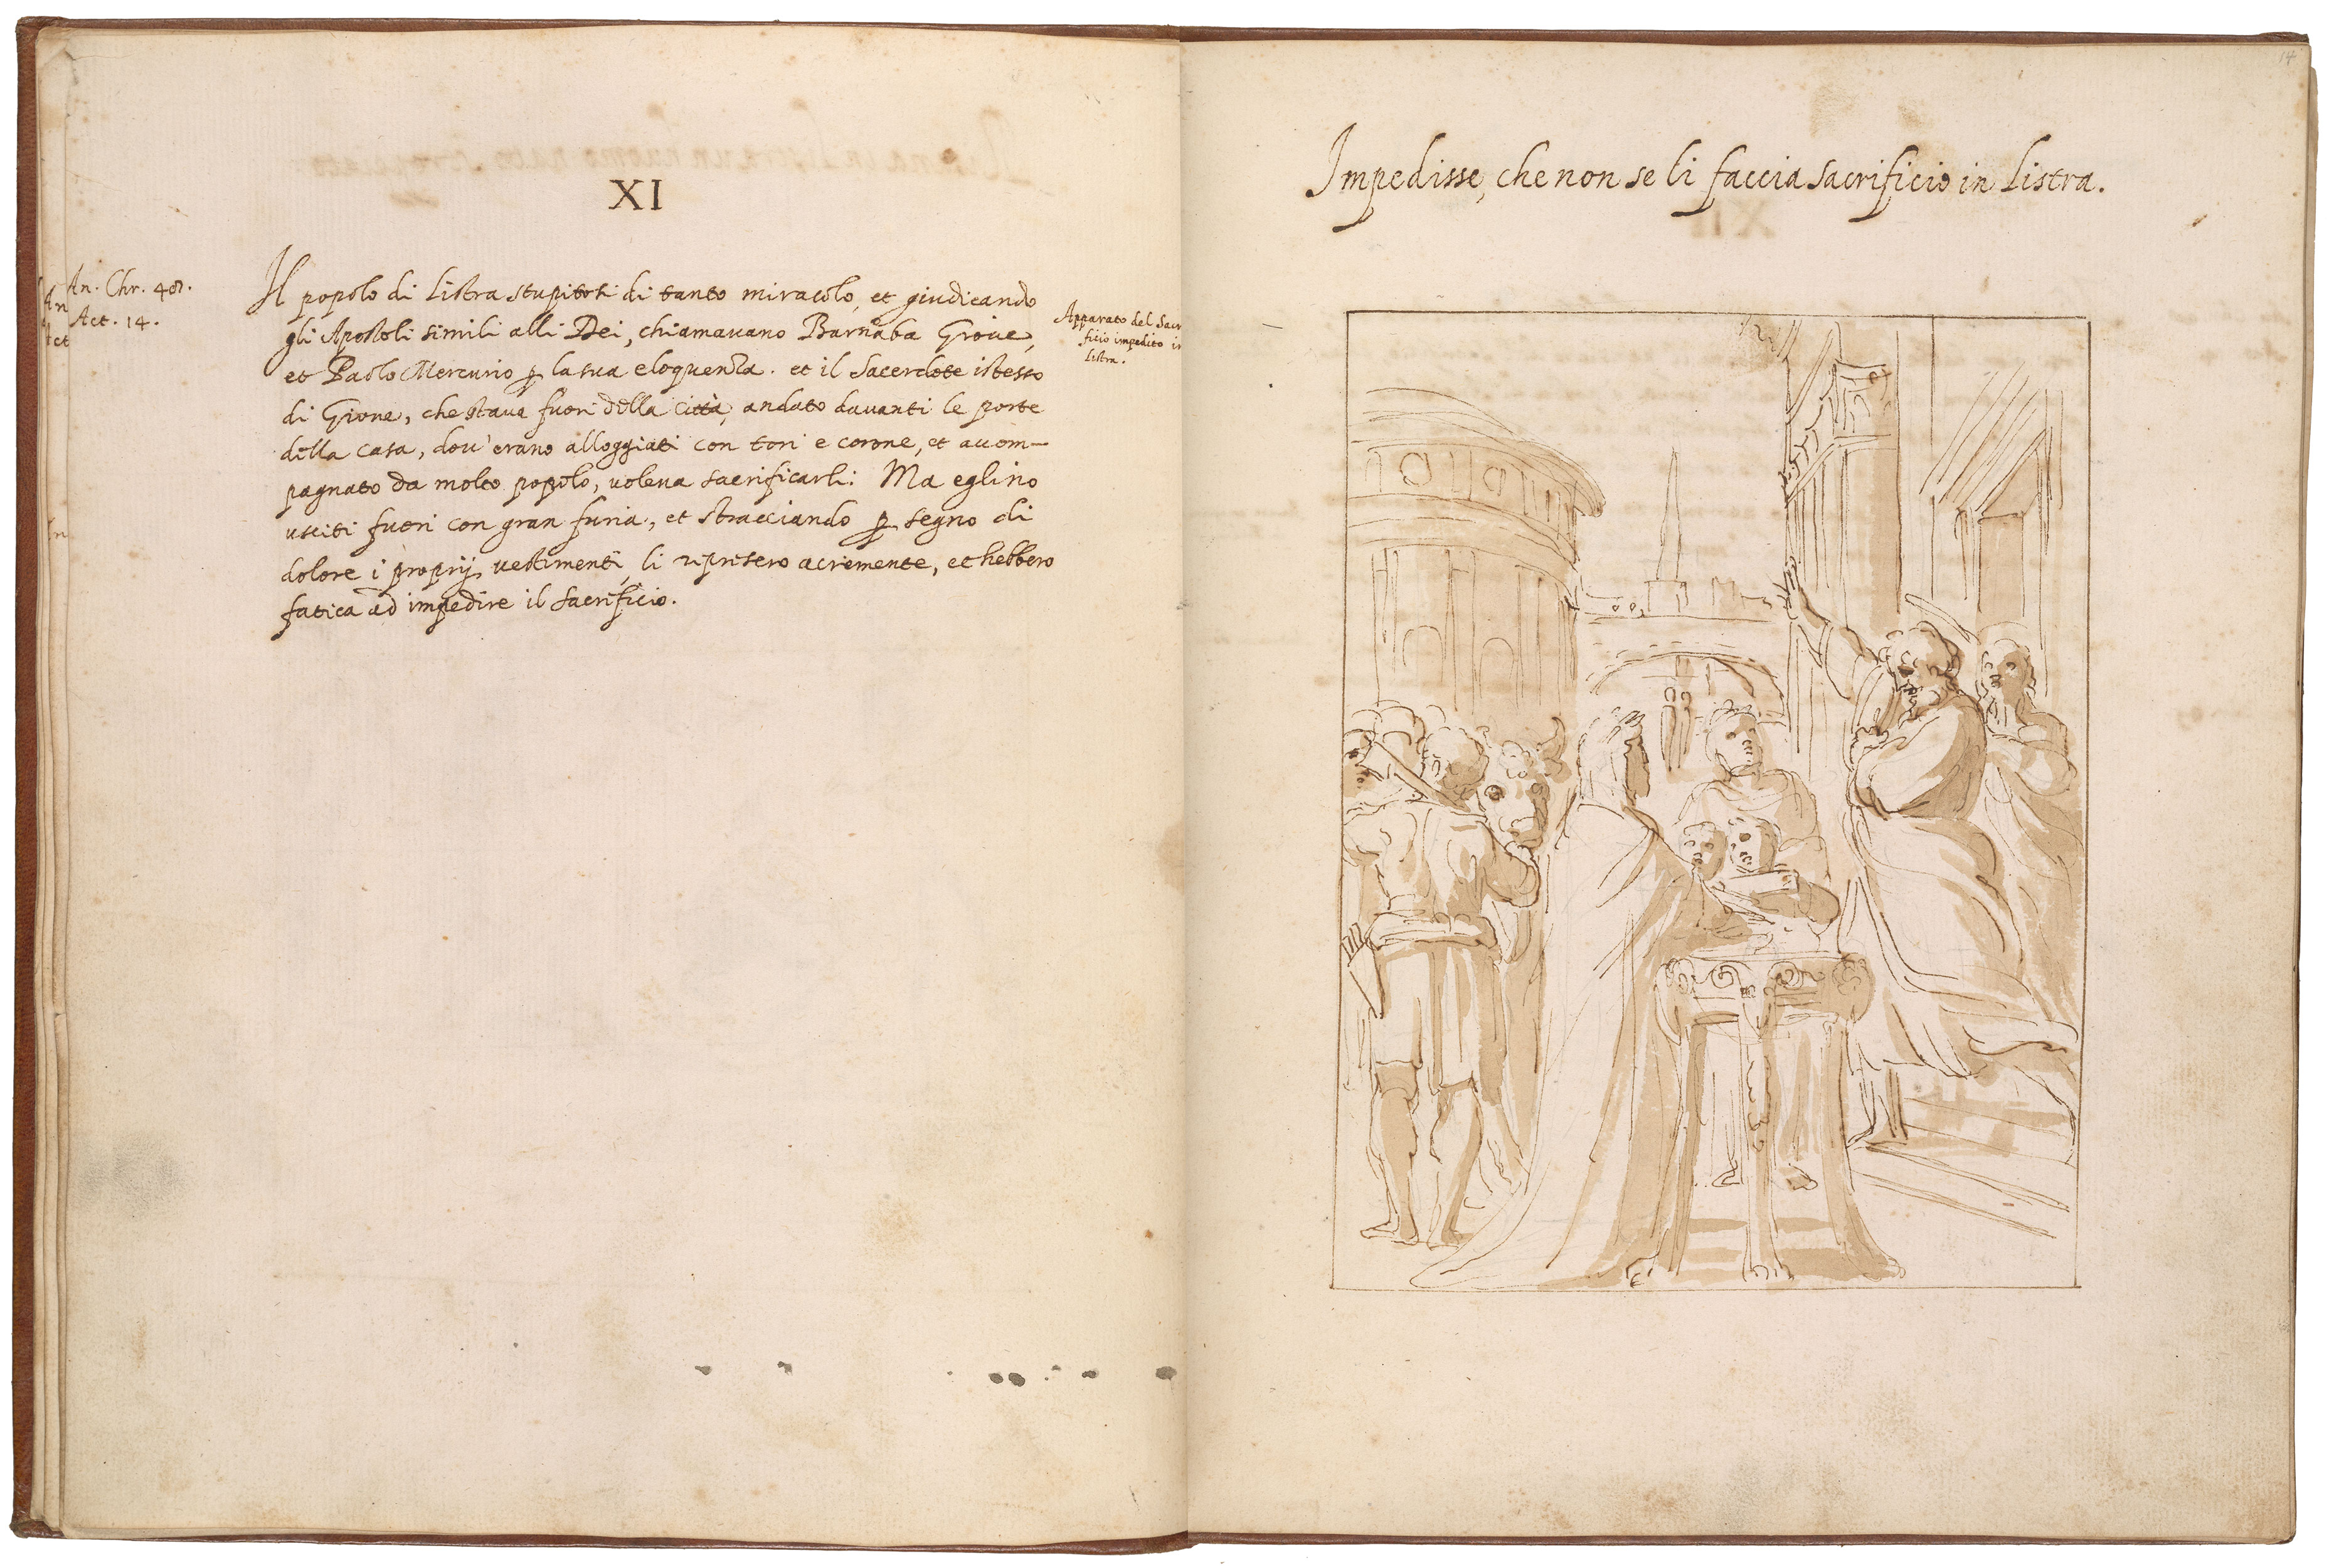 XI
An. Chr. 48.
Act. 14.
Il popolo di Listra stupitosi di tanto miracolo, et giudicando
gli Apostoli simili alli Dei, chiamauano Barnaba Gioue,
et Paolo Mercurio p la sua eloquenza. et il Sacerdote istesso
di Gioue, che staua fuori della città, andato dauanti le porte
della casa, dou'erano alloggiati con tori e corone, et accom-
pagnato da molto popolo, uoleua sacrificarli: Ma eglino
usciti fuori con gran furia, et stracciando p segno di
dolore i proprij uestimenti, li ripresero acremente, et hebbero
fatica ad impedire il sacrificio.
Apparato del Sacr
ficio impedito in
Listra.
An
Act
14
Impedisse, che non se li faccia sacrificio in Listra.